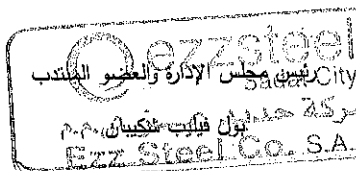 ezzsteel
رئيس مجلس الإدارة والعضو المنتدب
Sadat City
بول فيليب شكيبان
Ezz Steel Co. S.A.